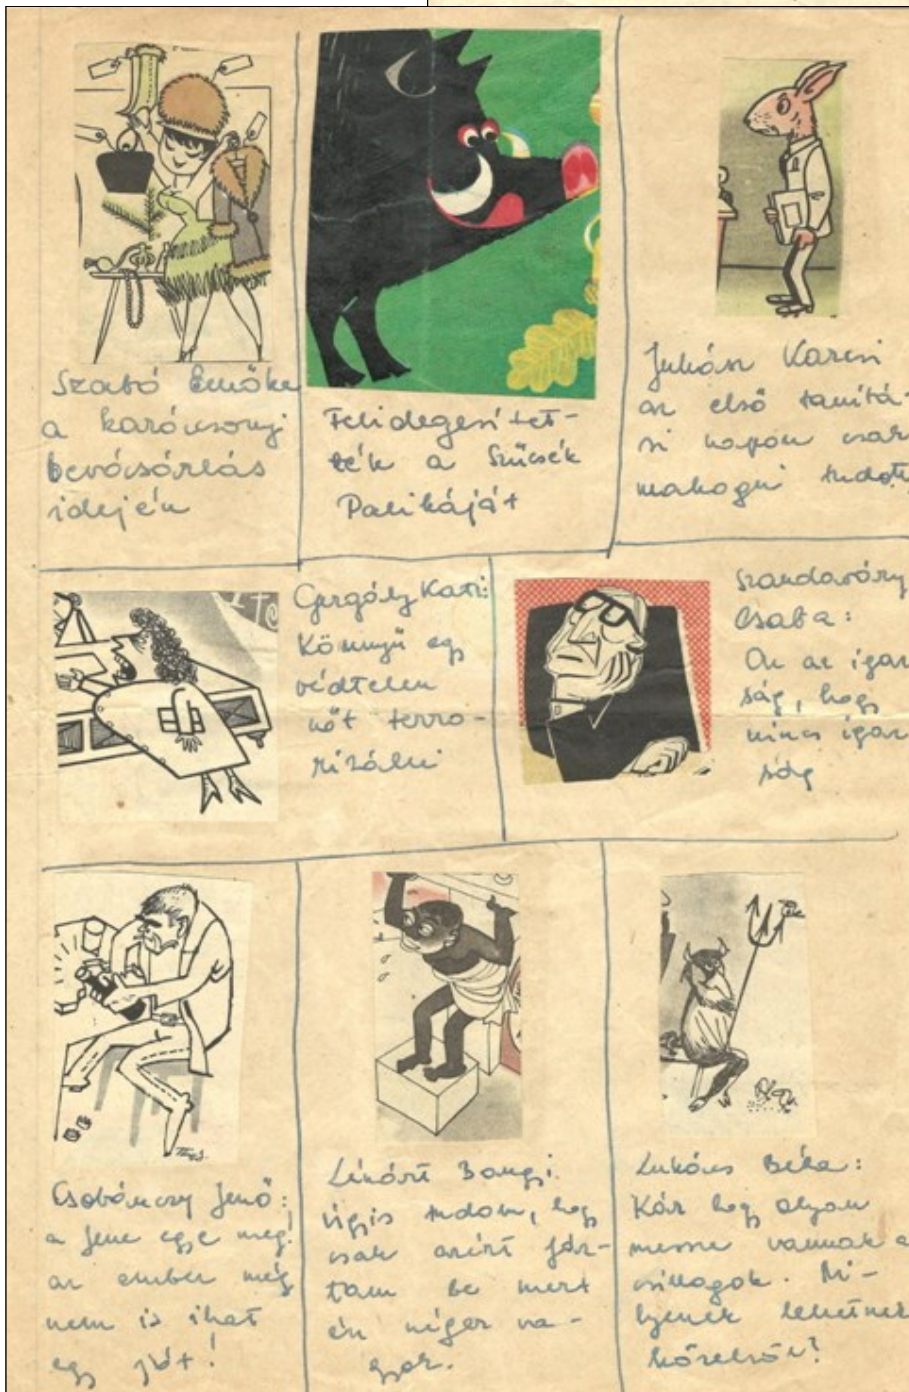 Szabó Emőke
a karácsonyi
bevásárlás
idején
Felidegesítet-
ték a Szücsék
Palikáját
Juhász Karcsi
az első tanítá-
si napon csak
makogni tudott
Gergály Kati:
Könnyü egy
védtelen
nőt terro-
rizálni
Szandaváry
Csaba:
Az az igaz
ság, hogy
nincs igaz
ság
Csobánczy Jenő:
a fene egye meg!
az ember még
nem is ihat
egy jót!
Lénárt Bongi:
Úgyis tudom, hogy
csak azért jár-
tam be mert
én néger va-
gyok.
Lukács Béla:
Kár hogy olyan
messze vannak a
csillagok. Mi-
lyenek lehetnek
közelről?